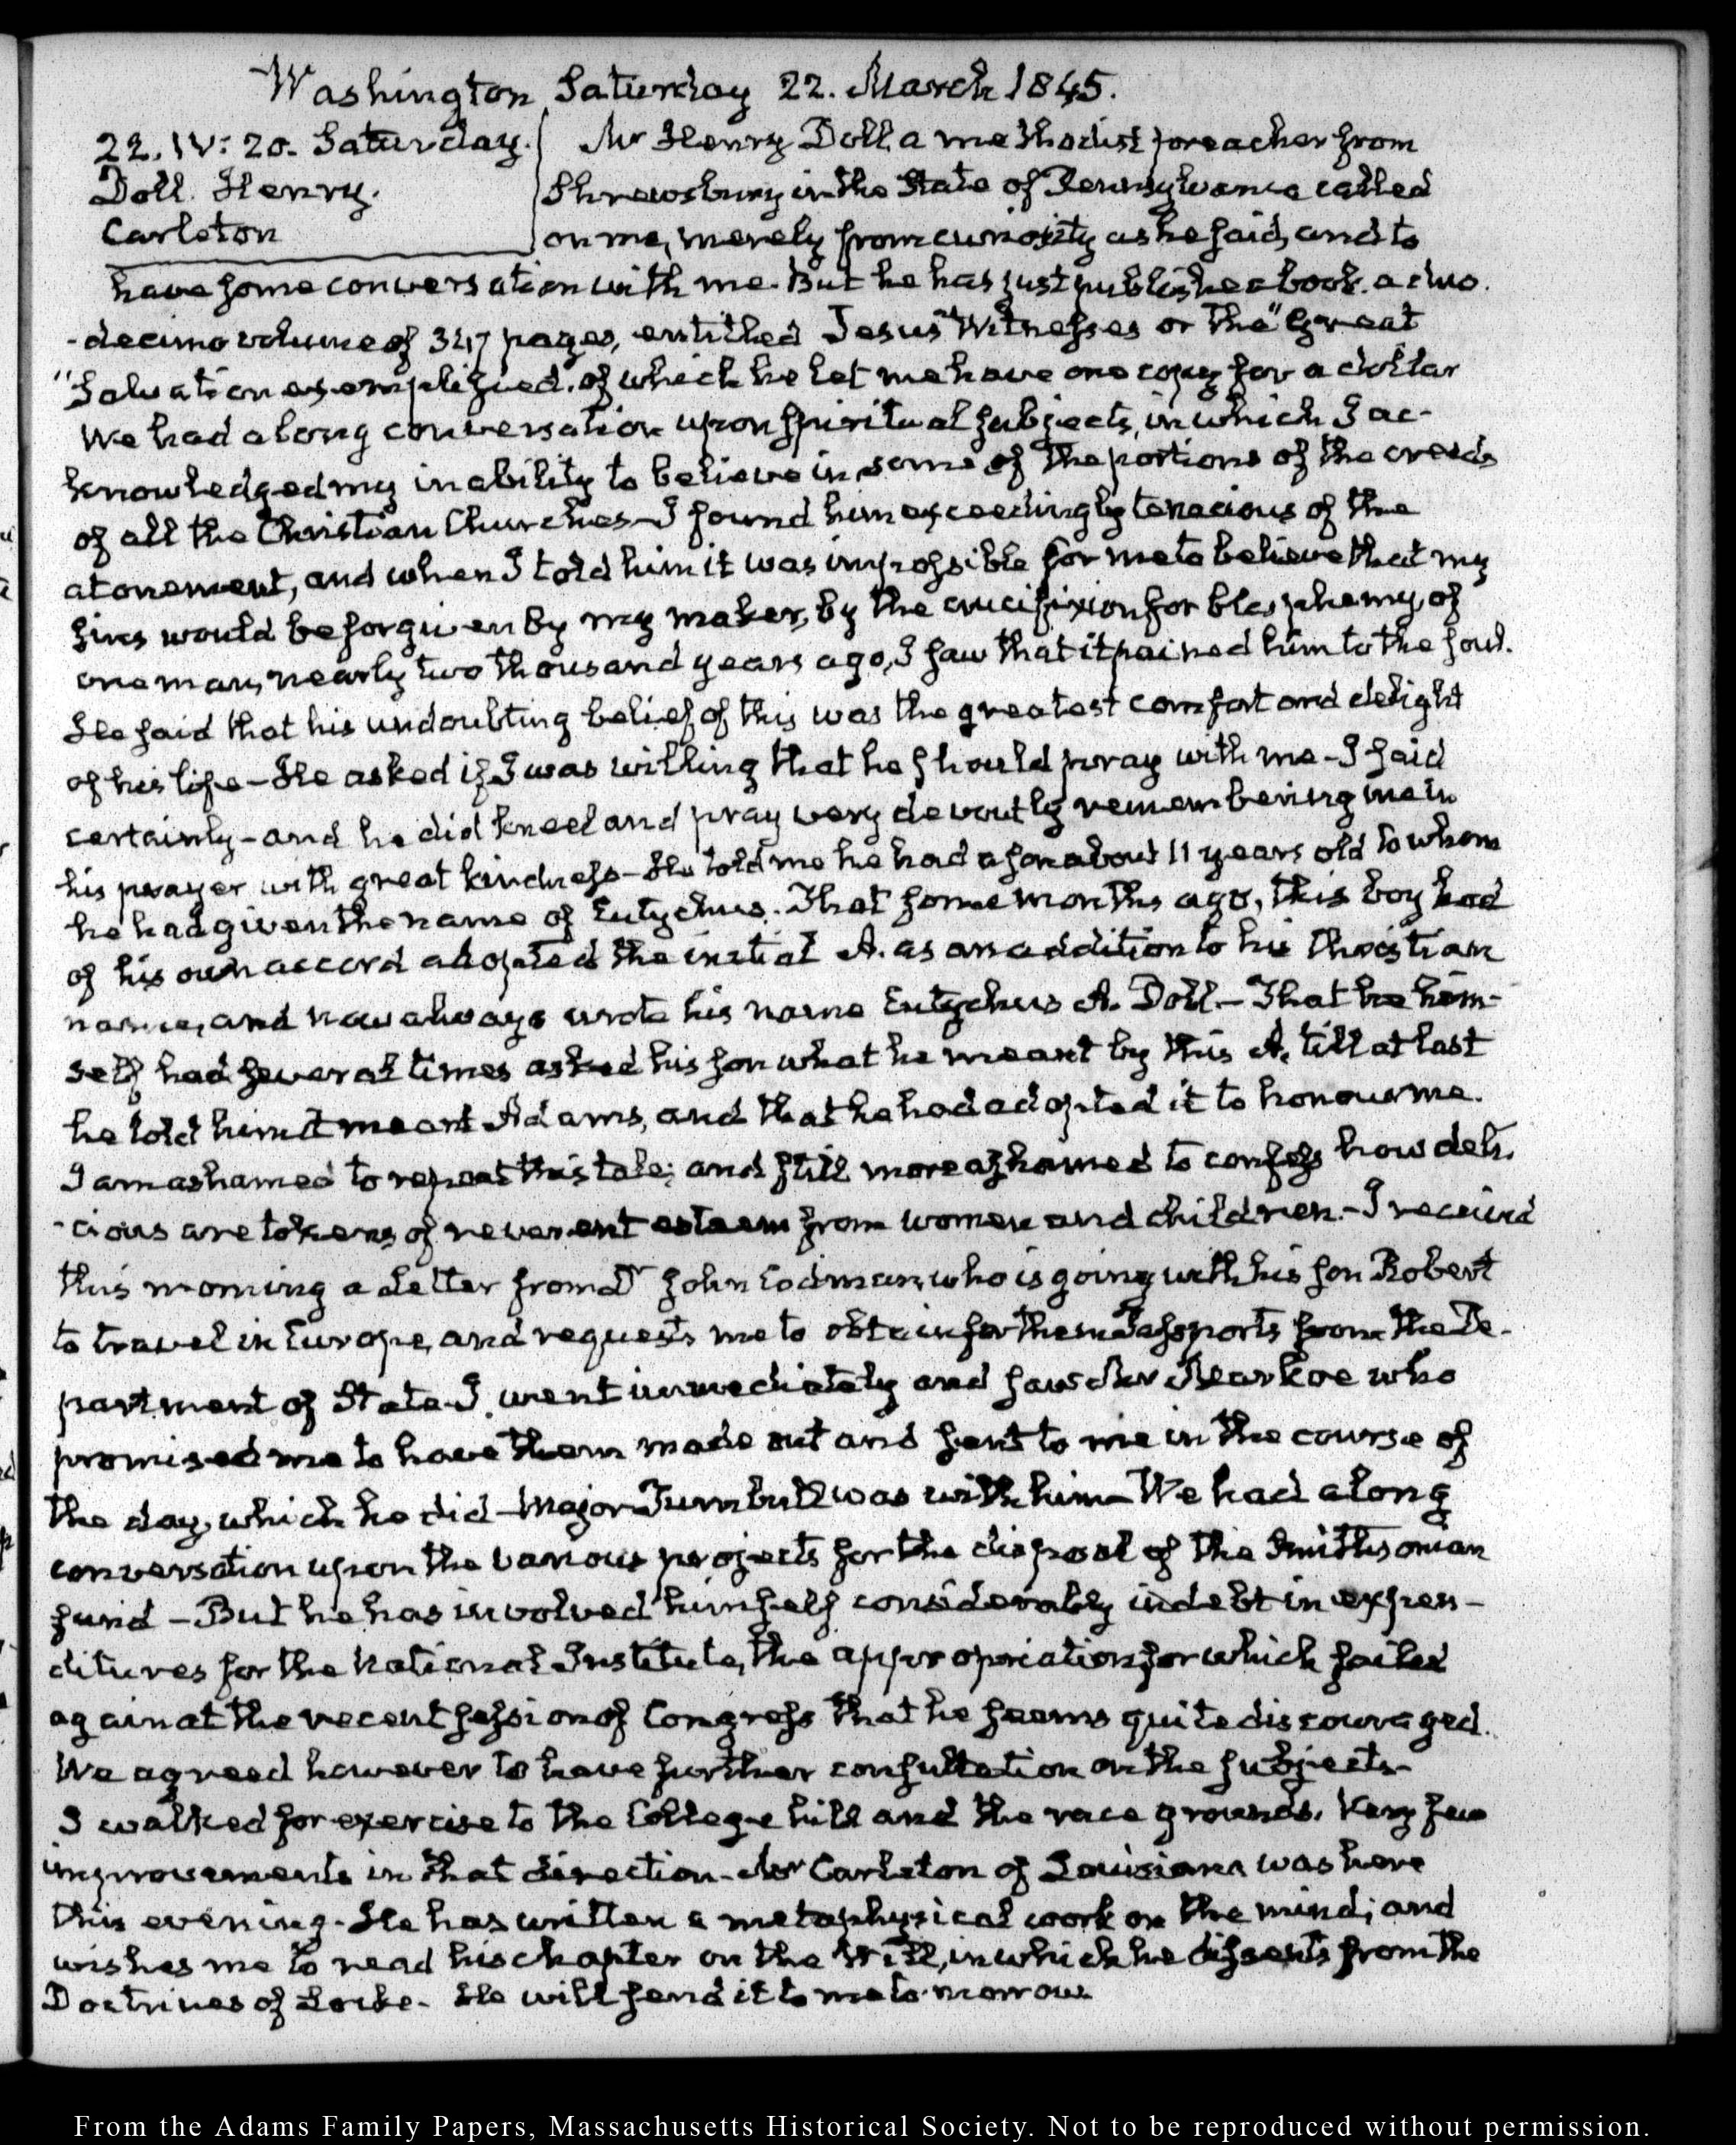 Washington Saturday 22. March 1845.
22. IV: 20. Saturday.
Doll. Henry.
Carleton
Mr Henry Doll a methodist preacher from
Shrewsbury in the State of Pennsylvania called
on me, merely from curiosity as he said, and to
have some conversation with me. But he has just published a book. a duo.
-decimo volume of 347 pages, entitled Jesus "Witnesses or the "Great
"Salvation exemplified. of which he let me have one copy for a dollar
We had a long conversation upon spiritual subjects, in which I ac-
knowledged my inability to believe in some of the portions of the creeds
of all the Christian Churches—I found him exceedingly tenacious of the
atonement, and when I told him it was impossible for me to believe that my
sins would be forgiven by my maker, by the crucifixion for blasphemy, of
one man, nearly two thousand years ago, I saw that it pained him to the soul.
He said that his undoubting belief of this was the greatest comfort and delight
of his life—He asked if I was willing that he should pray with me—I said
certainly—and he did kneel and pray very devoutly remembering me in
his prayer with great kindness—He told me he had a son about 11 years old to whom
he had given the name of Eutychus. That some months ago, this boy had
of his own accord adopted the initial A. as an addition to his Christian
name, and now always wrote his name Eutychus A. Doll—That he him-
self had several times asked his son what he meant by this A, till at last
he told him it meant Adams, and that he had adopted it to honour me.
I am ashamed to repeat this tale; and still more ashamed to confess how deli.
-cious are tokens of reverent esteem from women and children.—I received
this morning a Letter from Dr John Codman, who is going with his son Robert
to travel in Europe, and requests me to obtain for them Passports from the De-
partment of State—I went immediately and saw Mr Markoe who
promised me to have them made out and sent to me in the course of
the day, which he did—Major Turnbull was with him—We had a long
conversation upon the various projects for the disposal of the Smithsonian
fund—But he has involved himself considerably in debt in expen-
ditures for the National Institute, the appropriation for which failed
again at the recent session of Congress that he seems quite discouraged.
We agreed however to have further consultation on the subjects—
I walked for exercise to the College hill and the race grounds. Very few
improvements in that direction—Mr Carleton of Louisiana was here
this evening. He has written a metaphysical work on the mind; and
wishes me to read his chapter on the Will, in which he dissents from the
Doctrines of Locke. He will send it to me to-morrow.
From the Adams Family Papers, Massachusetts Historical Society. Not to be reproduced without permission.